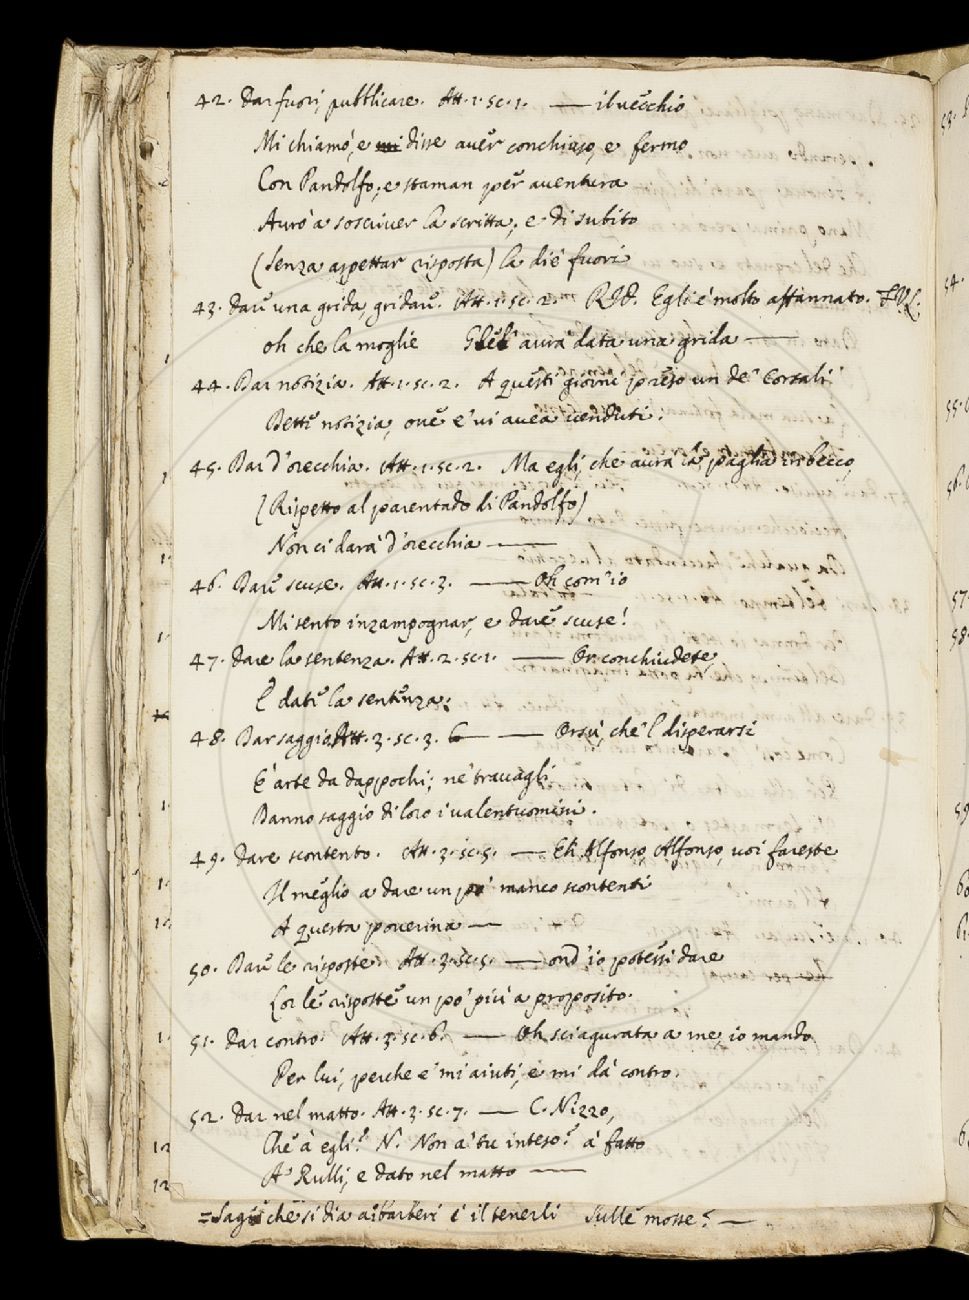 42. Dar fuori, pubblicare. Att. 1. sc. 1. —— il vecchio
Mi chiamò, e mi disse aver conchiuso, e fermo
Con Pandolfo; e staman per aventura
Aurò a soscriver la scritta; e di subito
(senza aspettar risposta) la diè fuori
43. dare una grida, gridare. Att. 1. sc. 2. Rid. Egli è molto affannato.
oh che la moglie Gli aurà data una grida ——
44. Dar notizia. Att. 1. sc. 2. A questi giorni preso un de' Corsali
Detti notizia, ove e' vi avea venduti.
45. Dar d'orecchia. Att. 1. sc. 2. Ma egli, che aurà la paglia in becco,
(Rispetto al parentado di Pandolfo)
Non ci darà d'orecchia ——
46. Dare scuse. Att. 1. sc. 3. —— Oh com'io
Mi sento inzampognar, e dare scuse!
47. Dare la sentenza. Att. 2. sc. 1. —— Or conchiudete,
E date la sentenza:
48. Dar saggio Att. 3. sc. 3. —— Orsù, che 'l disperarsi
E' arte da dappochi; ne' travagli
Danno saggio di loro i valentuomini.
49. Dare scontento. Att. 3. sc. 5. —— Eh Alfonso, Alfonso, voi fareste
Il meglio a dare un po' manco scontenti
A questa poverina ——
50. Dare le risposte. Att. 3. sc. 5. —— ond'io potessi dare
Lor le risposte un po' più a proposito.
51. Dar contro. Att. 3. sc. 6. —— Oh sciagurata a me, io mando
Per lui, perche e' mi aiuti, e mi dà contro.
52. Dar nel matto. Att. 3. sc. 7. —— C. Nizzo,
Che à egli? N. Non a' tu inteso? à fatto
A' Rulli, e dato nel matto ——
che si dia a i barberi è il tenerli Sulle mosse? —